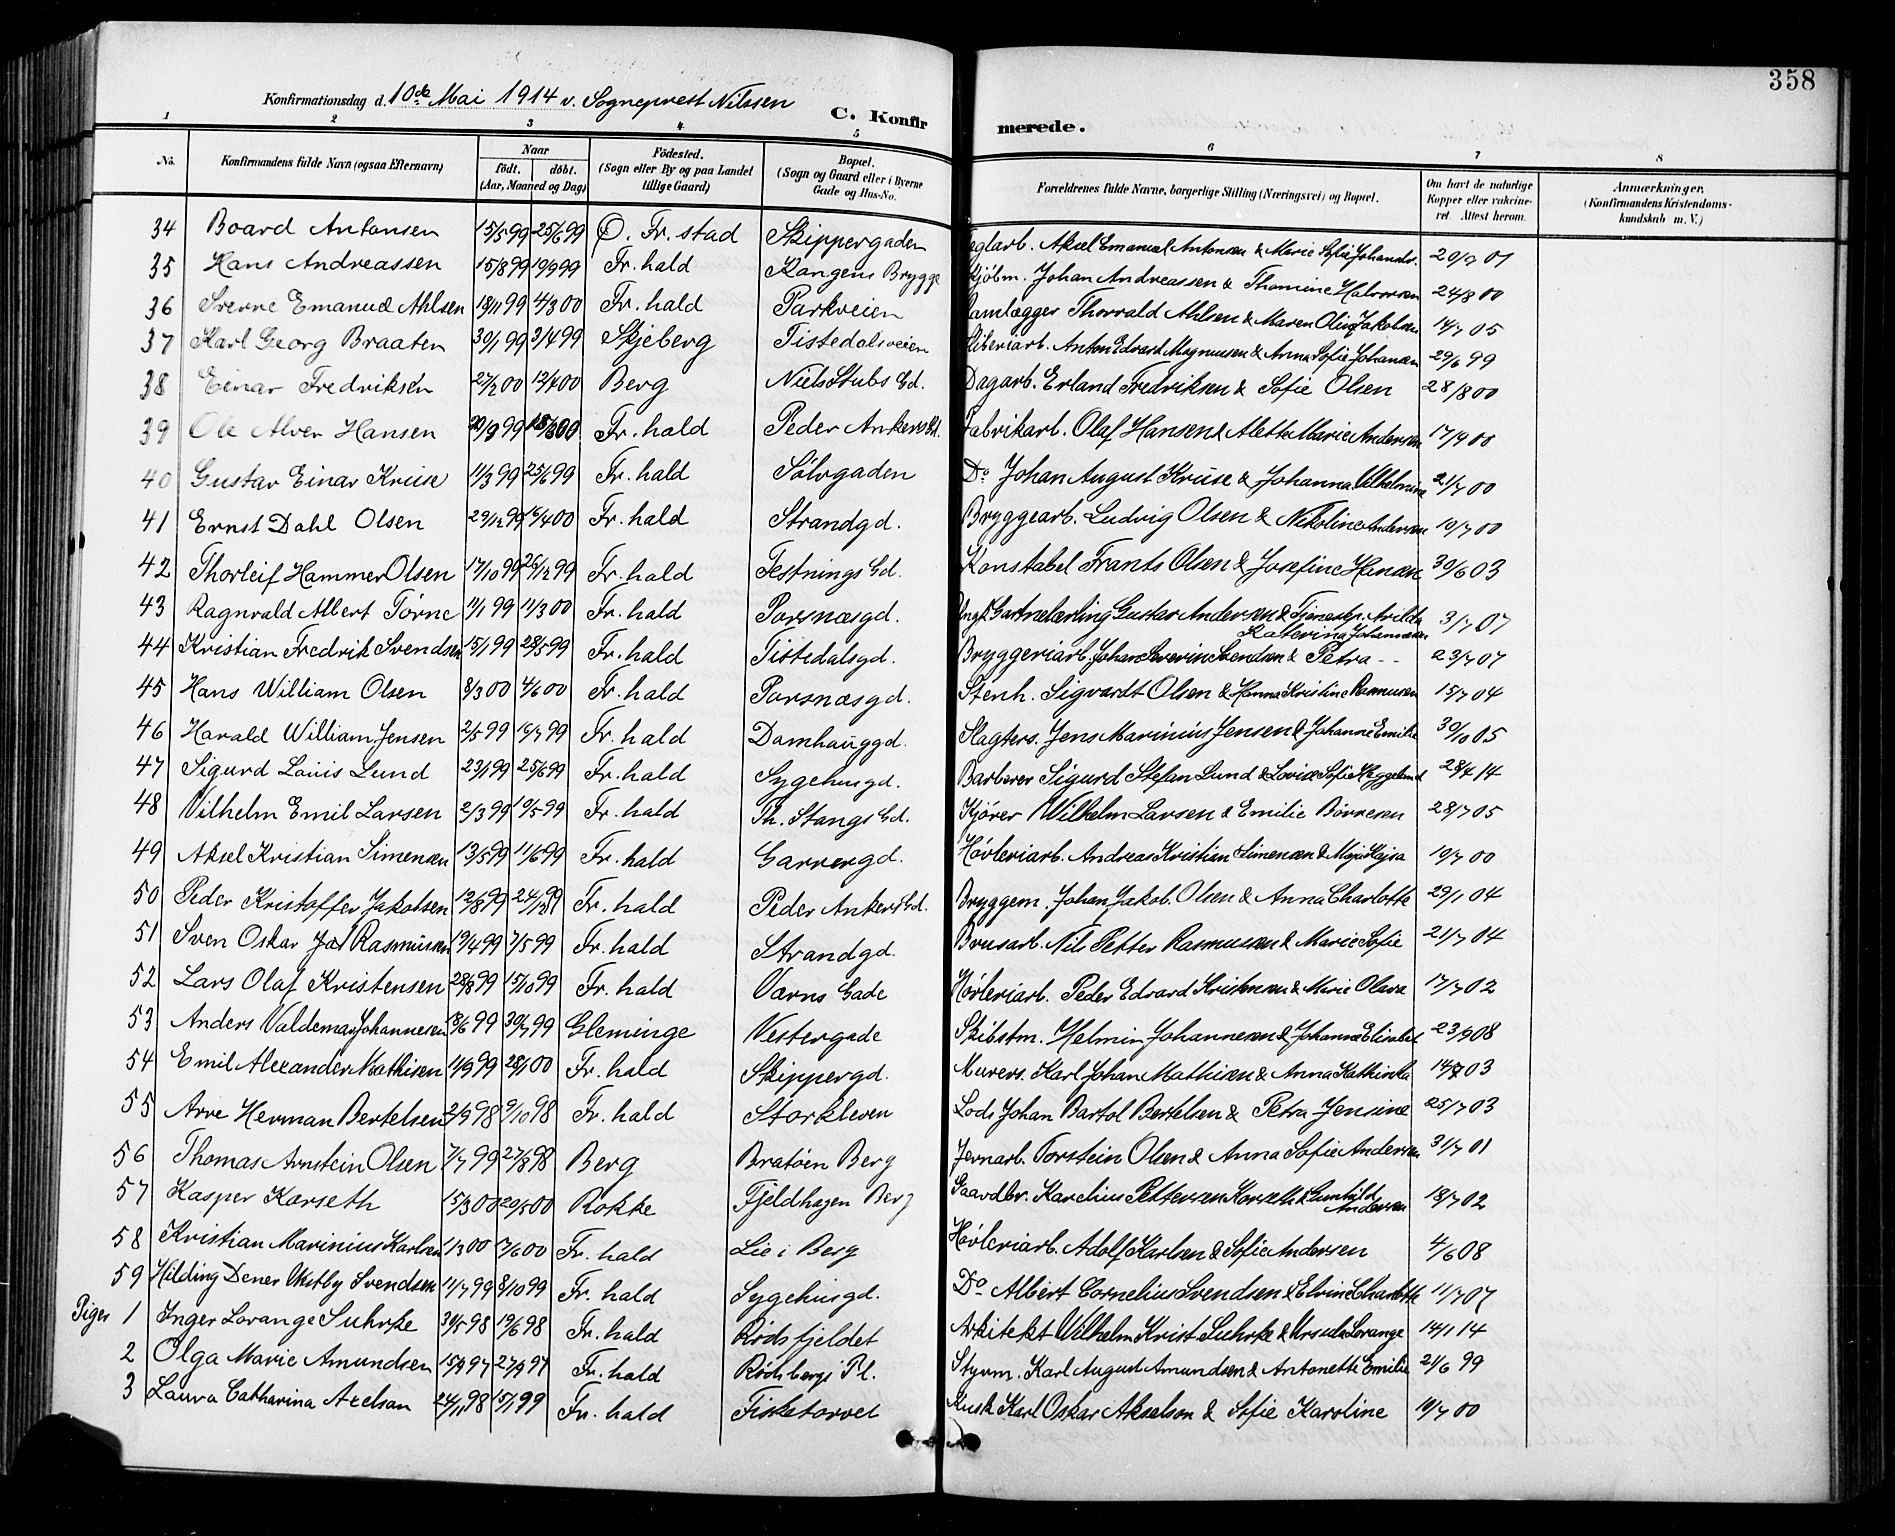 358
Konfirmationsdag d. 10de Mai 1914 v. Sogneprest Nilssen
C. Konfirmerede.
1 2 3 4 5 6 7 8
No. Konfirmandens fulde Navn (ogsaa Efternavn) Naar født. døbt. (Aar, Maaned og Dag) Fødested. (Sogn eller By og paa Landet tillige Gaard) Bopæl. (Sogn og Gaard eller i Byerne Gade og Hus-No. Forældrenes fulde Navne, borgerlige Stilling (Næringsvei) og Bopæl. Om havt de naturlige Kopper eller vakcineret. Attest herom. Anmærkninger. (Konfirmandens Kristendomskundskab m. V.)
34 Board Antonsen 15/5 99 25/6 99 Ø. Fr. stad Skippergaden Teglarb. Aksel Emanuel Antonsen & Marie Sofie Johands. 20/7 01
35 Hans Andreassen 15/8 99 19/9 99 Fr. hald Kongens Brygge Kjøbm. Johan Andreassen & Thomine Halvorsen 24/8 00
36 Sverre Emanuel Ahlsen 18/11 99 4/3 00 Fr. hald Parkveien Ramlægger Thorvald Ahlsen & Maren Oline Jakobsen 14/7 05
37 Karl Georg Braaten 30/1 99 3/4 99 Skjeberg Tistedalsveien Sliberiarb. Anton Edvard Magnussen & Anna Sofie Johansen 29/6 99
38 Einar Fredriksen 27/2 00 13/4 00 Berg Niels Stubs Gd. Dagarb. Erland Fredriksen & Sofie Olsen 28/8 00
39 Ole Alver Hansen 20/9 99 18/3 00 Fr. hald Peder Ankers Gd. Fabrikarb. Olaf Hansen & Aletta Marie Andersen 17/9 00
40 Gustav Einar Kruse 11/3 99 25/6 99 Fr. hald Sølvgaden Do Johan August Kruse & Johanna Vilhelmine 21/7 00
41 Ernst Dahl Olsen 29/12 99 16/4 00 Fr. hald Strandgd. Bryggearb. Ludvig Olsen & Nikoline Andersen 10/7 00
42 Thorleif Hammer Olsen 17/10 99 26/12 99 Fr. hald Festnings Gd. Konstabel Frants Olsen & Josefine Hansen 30/6 03
43 Ragnvald Albert Tørne 11/1 99 11/3 00 Fr. hald Porsnæsgd. Ungk. Gartnelærling Gustav Andersen & Tjenestep. Arilda Katerina Johannesen 3/7 07
44 Kristian Fredrik Svendsen 15/1 99 28/5 99 Fr. hald Tistedalsgd. Bryggeriarb. Johan Severin Svendsen & Petra -- 23/7 07
45 Hans William Olsen 8/3 00 4/6 00 Fr. hald Porsnæsgd. Stenh. Sigvardt Olsen & Hanna Kristine Rasmusen 15/7 04
46 Harald William Jensen 2/5 99 16/7 99 Fr. hald Damhauggd. Slagters. Jens Marinius Jensen & Johanne Emilie 30/10 05
47 Sigurd Louis Lund 23/1 99 25/6 99 Fr. hald Sygehusgd. Barberer Sigurd Stefan Lund & Lovise Sofie Heggelund 28/4 14
48 Vilhelm Emil Larsen 2/3 99 10/5 99 Fr. hald Th. Stangs Gd. Kjører Wilhelm Larsen & Emilie Børresen 28/7 05
49 Aksel Kristian Simensen 13/5 99 11/6 99 Fr. hald Garvergd. Høvleriarb. Andreas Kristian Simensen & Maja Kajsa 10/7 00
50 Peder Kristoffer Jakobsen 12/8 99 24/12 99 Fr. hald Peder Ankers Gd. Bryggem. Johan Jakob. Olsen & Anna Charlotte 29/1 04
51 Sven Oskar Jal Rasmussen 19/4 99 7/5 99 Fr. hald Strandgd. Brusarb. Nils Petter Rasmussen & Marie Sofie 21/7 04
52 Lars Olaf Kristensen 28/8 99 15/10 99 Fr. hald Værns Gade Høvleriarb. Peder Edvard Kristensen & Marie Olava 17/7 02
53 Anders Valdemar Johannesen 18/6 99 30/7 99 Gleminge Vestergade Skibstm. Helmin Johannesen & Johanne Elisabet 23/9 08
54 Emil Alexander Mathisen 11/9 99 28/1 00 Fr. hald Skippergd. Murers. Karl Johan Mathisen & Anna Kathinka 14/7 03
55 Arve Herman Bertelsen 2/9 98 9/10 98 Fr. hald Storkleven Lods Johan Bartol Bertelsen & Petra Jensine 25/7 03
56 Thomas Arnstein Olsen 7/7 99 27/8 98 Berg Bratøen Berg Jernarb. Torstein Olsen & Anna Sofie Andersen 31/7 01
57 Kasper Korseth 15/3 00 20/5 00 Rokke Fjeldhagen Berg Gaardbr. Karelius Pettersen Korseth & Gunhild Andersen 18/7 02
58 Kristian Marinius Karlsen 1/3 00 17/6 00 Fr. hald Lie i Berg Høvleriarb. Adolf Karlsen & Sofie Andersen 4/6 08
59 Hilding Dener Vestby Svendsen 11/7 99 8/10 99 Fr. hald Sygehusgd. Do Albert Cornelius Svendsen & Elvine Charlotte 11/7 07
Piger 1 Inger Lorange Suhrke 30/5 98 19/6 98 Fr. hald Rødsfjeldet Arkitekt Vilhelm Krist Suhrke & Ursula Lorange 14/1 14
2 Olga Marie Amundsen 15/9 97 27/9 97 Fr. hald Rødsbergs Pl. Styrm. Karl August Amundsen & Antonette Emilie 21/6 99
3 Laura Catharina Axelson 24/11 98 15/1 99 Fr. hald Fisketorvet Kusk Karl Oskar Akselson & Sofie Karoline 10/7 00